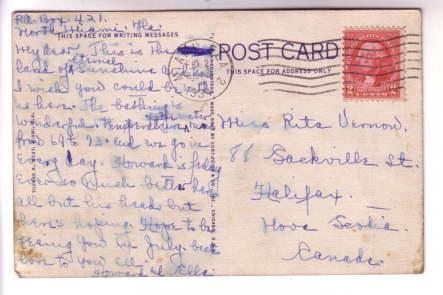 P.O. Box 421.
North Miami. Fla.
THIS SPACE FOR WRITING MESSAGES
POST CARD
THIS SPACE FOR ADDRESS ONLY
My dear, This is the
land of eternal sunshine and
I wish you could be with
us here. The bathing is
wonderful temperature of the water
from 69 to 75. and we go in
every day. Howard is feeling
ever so much better here
all but his head but
here's hoping. Hope to be
seeing you in July. best
love to you all.
Howard & Ella.
Miss Rita Vernow.
88 Sackville St.
Halifax.
Nova Scotia.
Canada.
2 CENTS 2